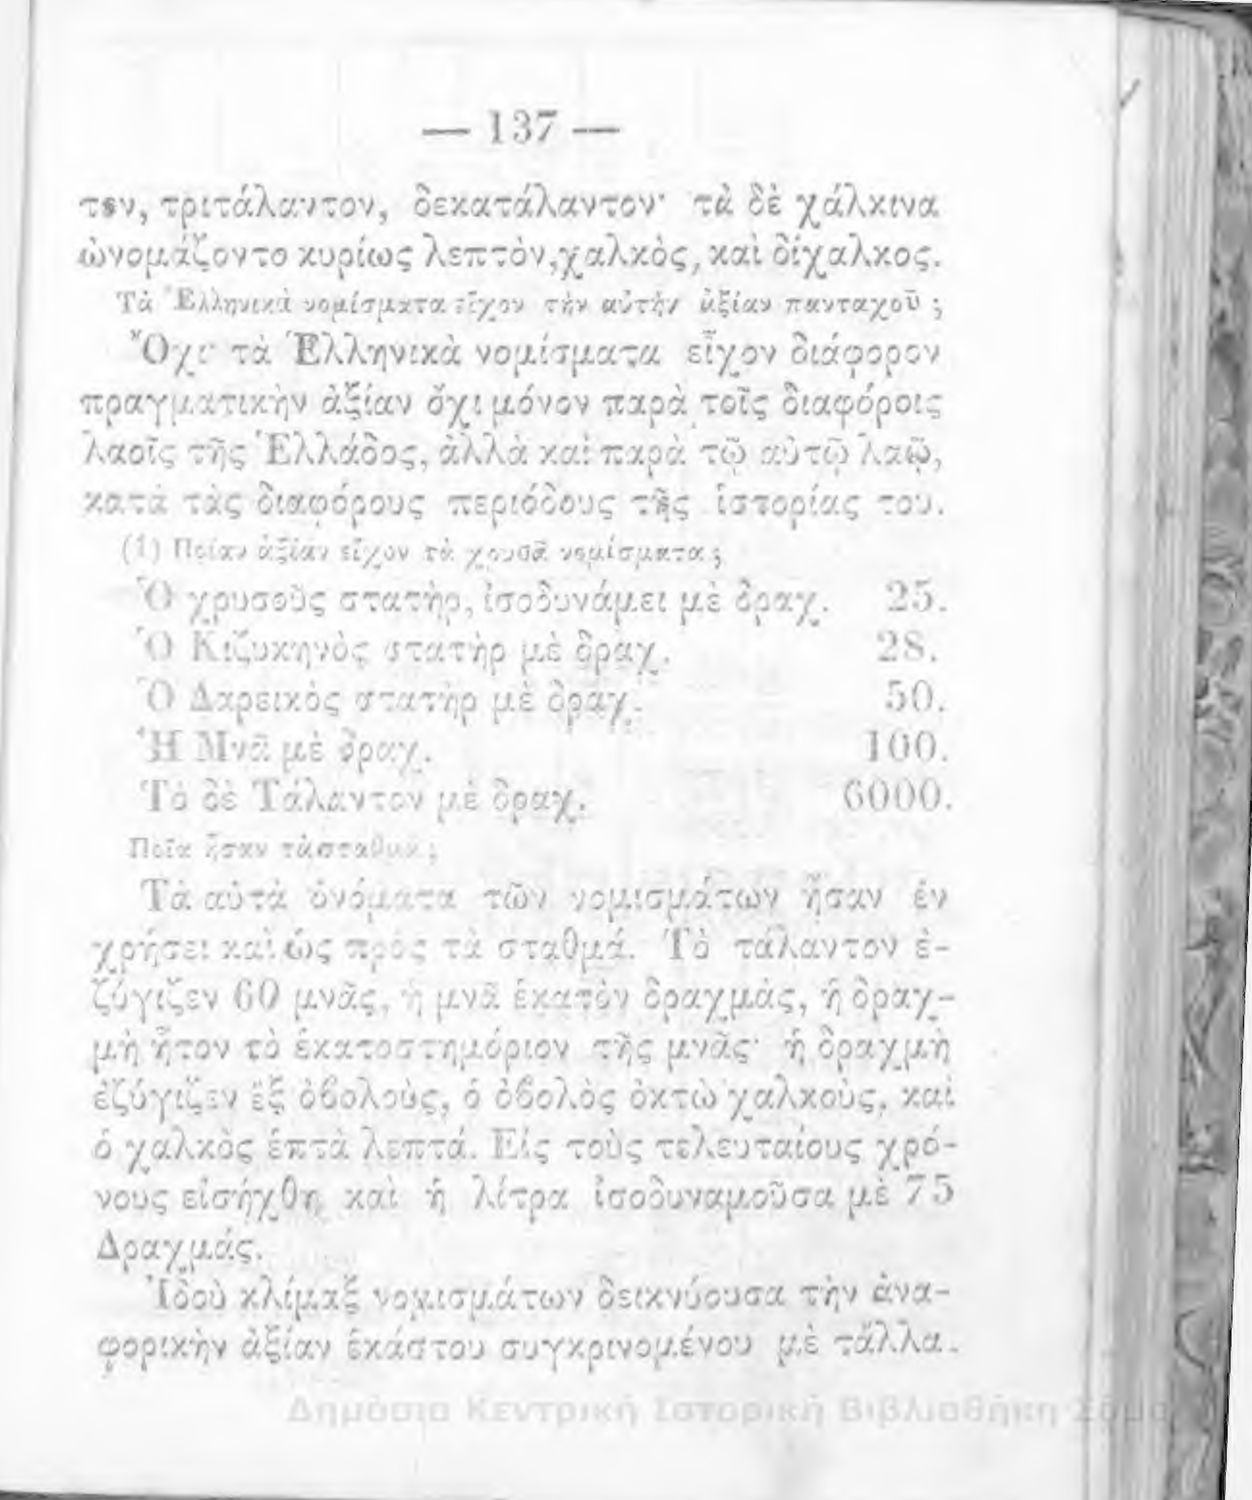 — 137 —
τον, τριτάλαντον, δεκατάλαντον· τὰ δὲ χάλκινα
ὠνομάζοντο κυρίως λεπτὸν, χαλκὸς, καὶ δίχαλκος.
Τὰ Ἑλληνικὰ νομίσματα εἶχον τὴν αὐτὴν ἀξίαν πανταχοῦ ;
Ὄχι· τὰ Ἑλληνικὰ νομίσματα εἶχον διάφορον
πραγματικὴν ἀξίαν ὄχι μόνον παρὰ τοῖς διαφόροις
λαοῖς τῆς Ἑλλάδος, ἀλλὰ καὶ παρὰ τῷ αὐτῷ λαῷ,
κατὰ τὰς διαφόρους περιόδους τῆς ἱστορίας του.
(1) Ποίαν ἀξίαν εἶχον τὰ χρυσᾶ νομίσματα ;
Ὁ χρυσοῦς στατὴρ, ἰσοδυνάμει μὲ δραχ. 25.
Ὁ Κιζυκηνὸς στατὴρ μὲ δραχ. 28.
Ὁ Δαρεικὸς στατὴρ μὲ δραχ. 50.
Ἡ Μνᾶ μὲ δραχ. 100.
Τὸ δὲ Τάλαντον μὲ δραχ. 6000.
Ποῖα ἦσαν τὰ σταθμά ;
Τὰ αὐτὰ ὀνόματα τῶν νομισμάτων ἦσαν ἐν
χρήσει καὶ ὡς πρὸς τὰ σταθμά. Τὸ τάλαντον ἐ-
ζύγιζεν 60 μνᾶς, ἡ μνᾶ ἑκατὸν δραχμὰς, ἡ δραχ-
μὴ ἦτον τὸ ἑκατοστημόριον τῆς μνᾶς· ἡ δραχμὴ
ἐζύγιζεν ἓξ ὀβολοὺς, ὁ ὀβολὸς ὀκτὼ χαλκοὺς, καὶ
ὁ χαλκὸς ἑπτὰ λεπτά. Εἰς τοὺς τελευταίους χρό-
νους εἰσήχθη καὶ ἡ λίτρα ἰσοδυναμοῦσα μὲ 75
Δραχμάς.
Ἰδοὺ κλίμαξ νομισμάτων δεικνύουσα τὴν ἀνα-
φορικὴν ἀξίαν ἑκάστου συγκρινομένου μὲ τἄλλα.
Δημόσια Κεντρική Ιστορική Βιβλιοθήκη